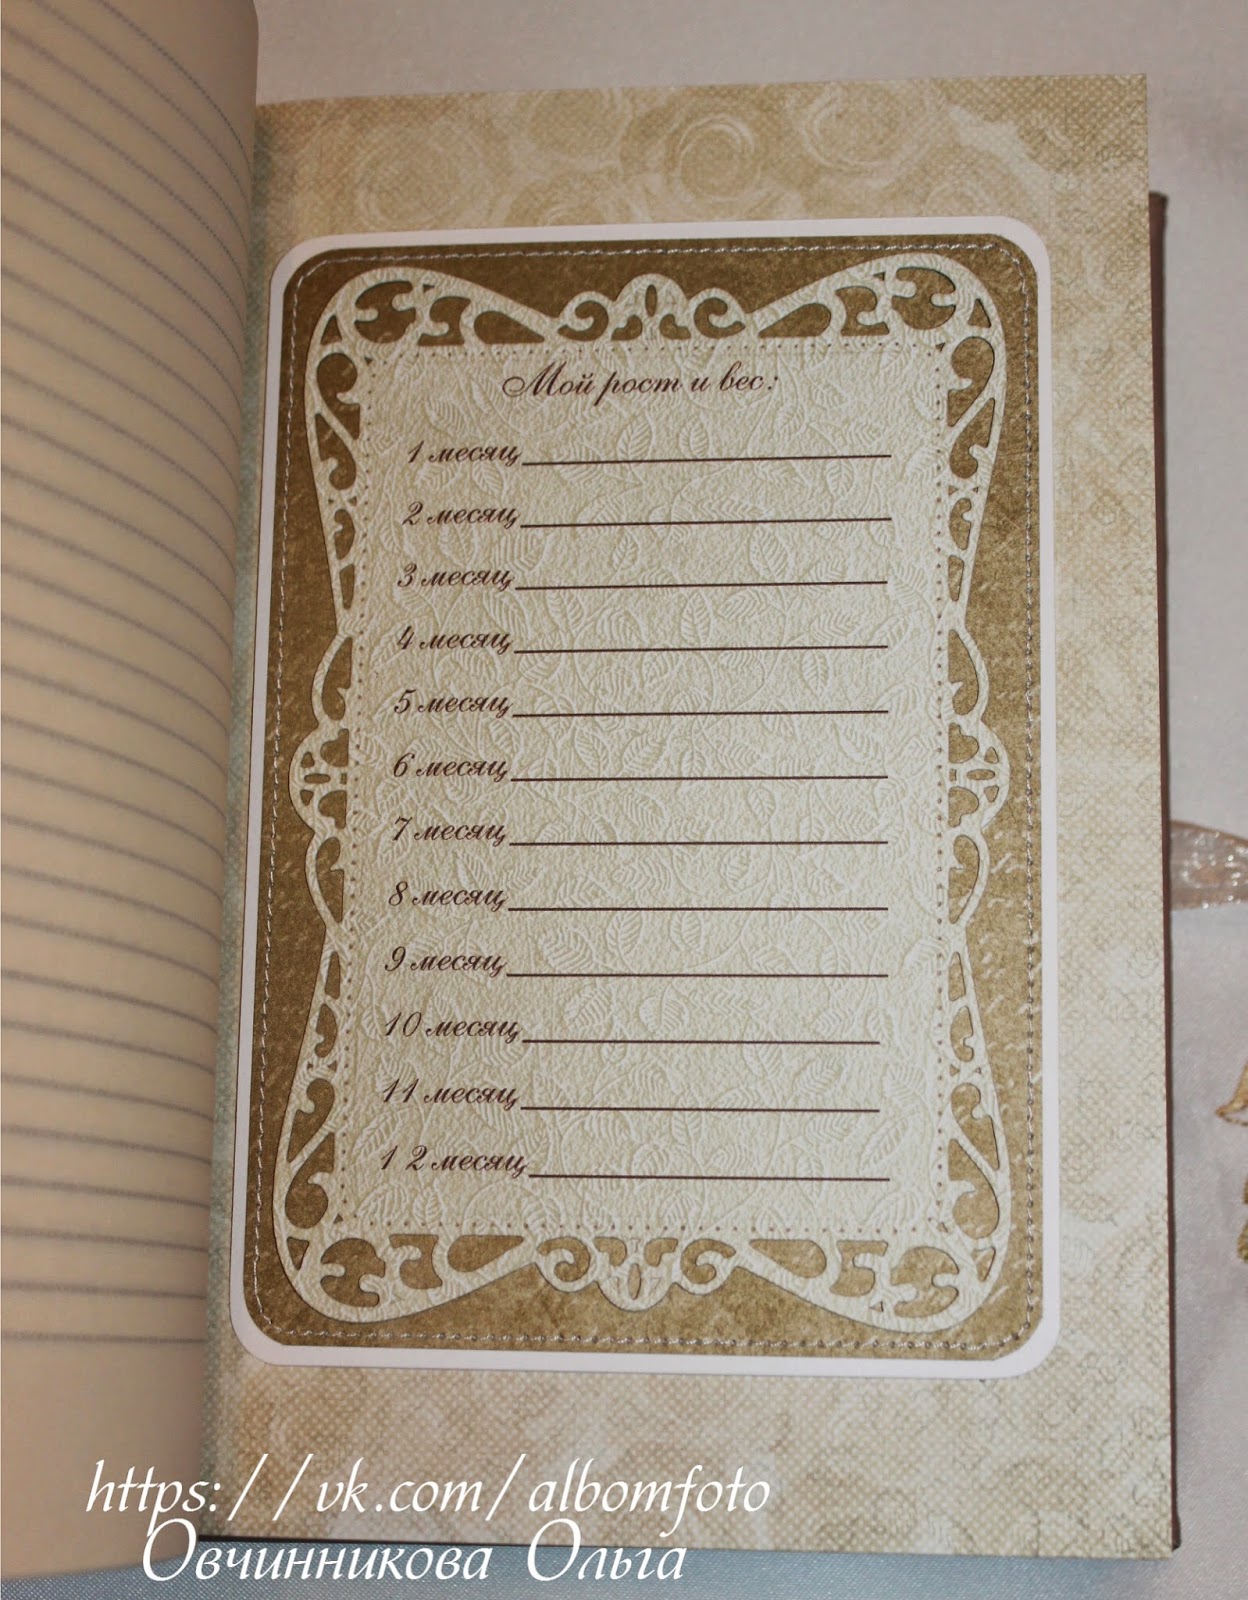 Мой рост и вес:
1 месяц
2 месяц
3 месяц
4 месяц
5 месяц
6 месяц
7 месяц
8 месяц
9 месяц
10 месяц
11 месяц
12 месяц
https://vk.com/albomfoto
Овчинникова Ольга